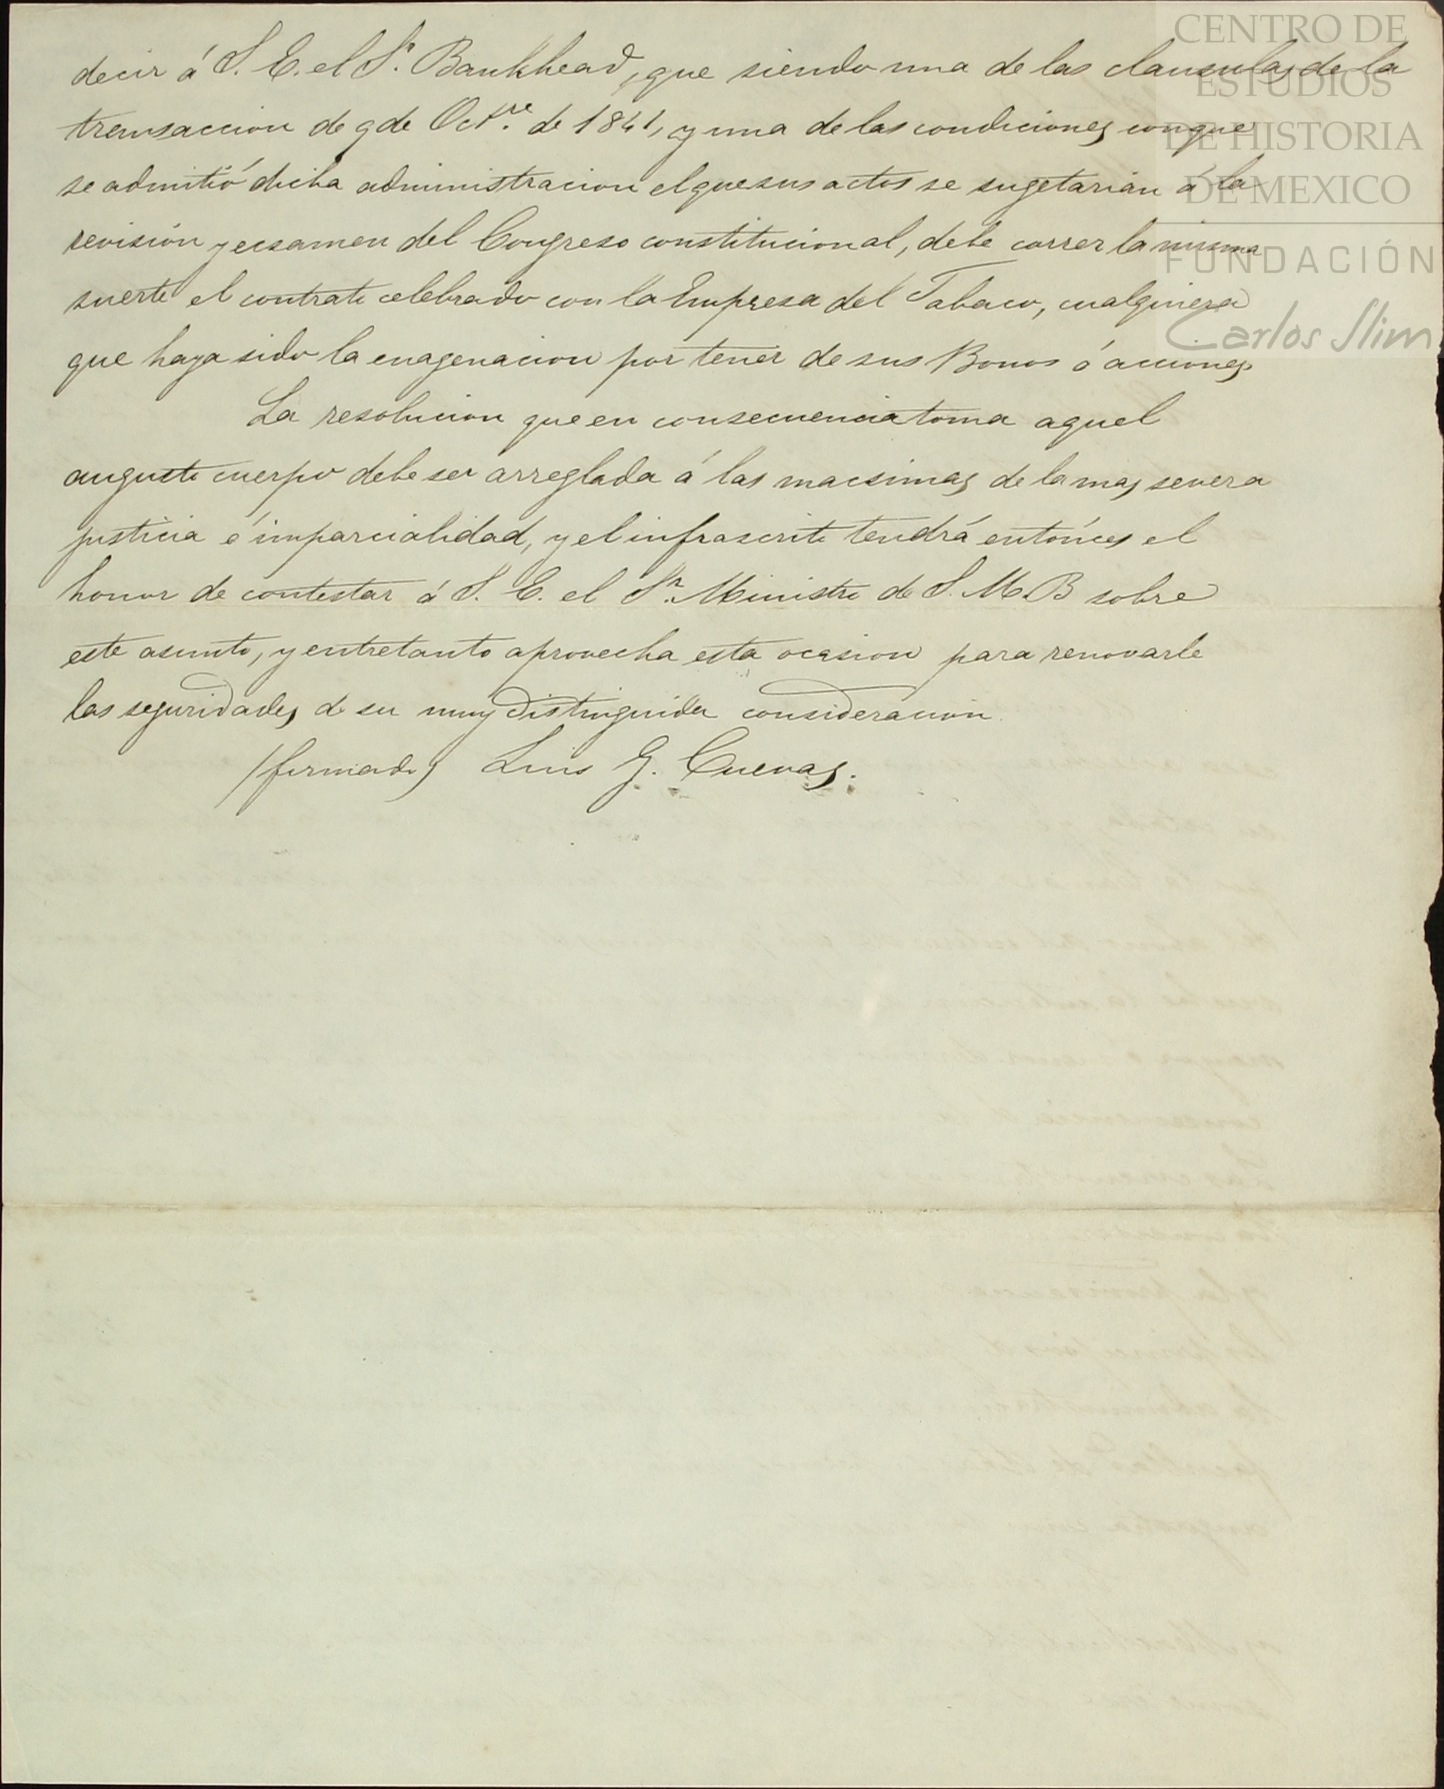 decir á S. E. el Sr. Bankhead, que siendo una de las clausulas de la
transaccion de 9 de Octre. de 1841, y una de las condiciones conque
se admitió dicha administracion el que sus actos se sugetarian á la
revisión y ecsamen del Congreso constitucional, debe correr la misma
suerte el contrato celebrado con la Empresa del Tabaco, cualquiera
que haya sido la enagenacion por tener de sus Bonos ó acciones
La resolucion que en consecuencia toma aquel
augusto cuerpo debe ser arreglada á las macsimas de la mas severa
justicia é imparcialidad, y el infrascrito tendrá entónces el
honor de contestar á S. E. el Sr. Ministro de S. M. B sobre
este asunto, y entretanto aprovecha esta ocasion para renovarle
las seguridades de su muy distinguida consideracion.
(firmado) Luis G. Cuevas.
CENTRO DE
ESTUDIOS
DE HISTORIA
DE MEXICO
FUNDACIÓN
Carlos Slim